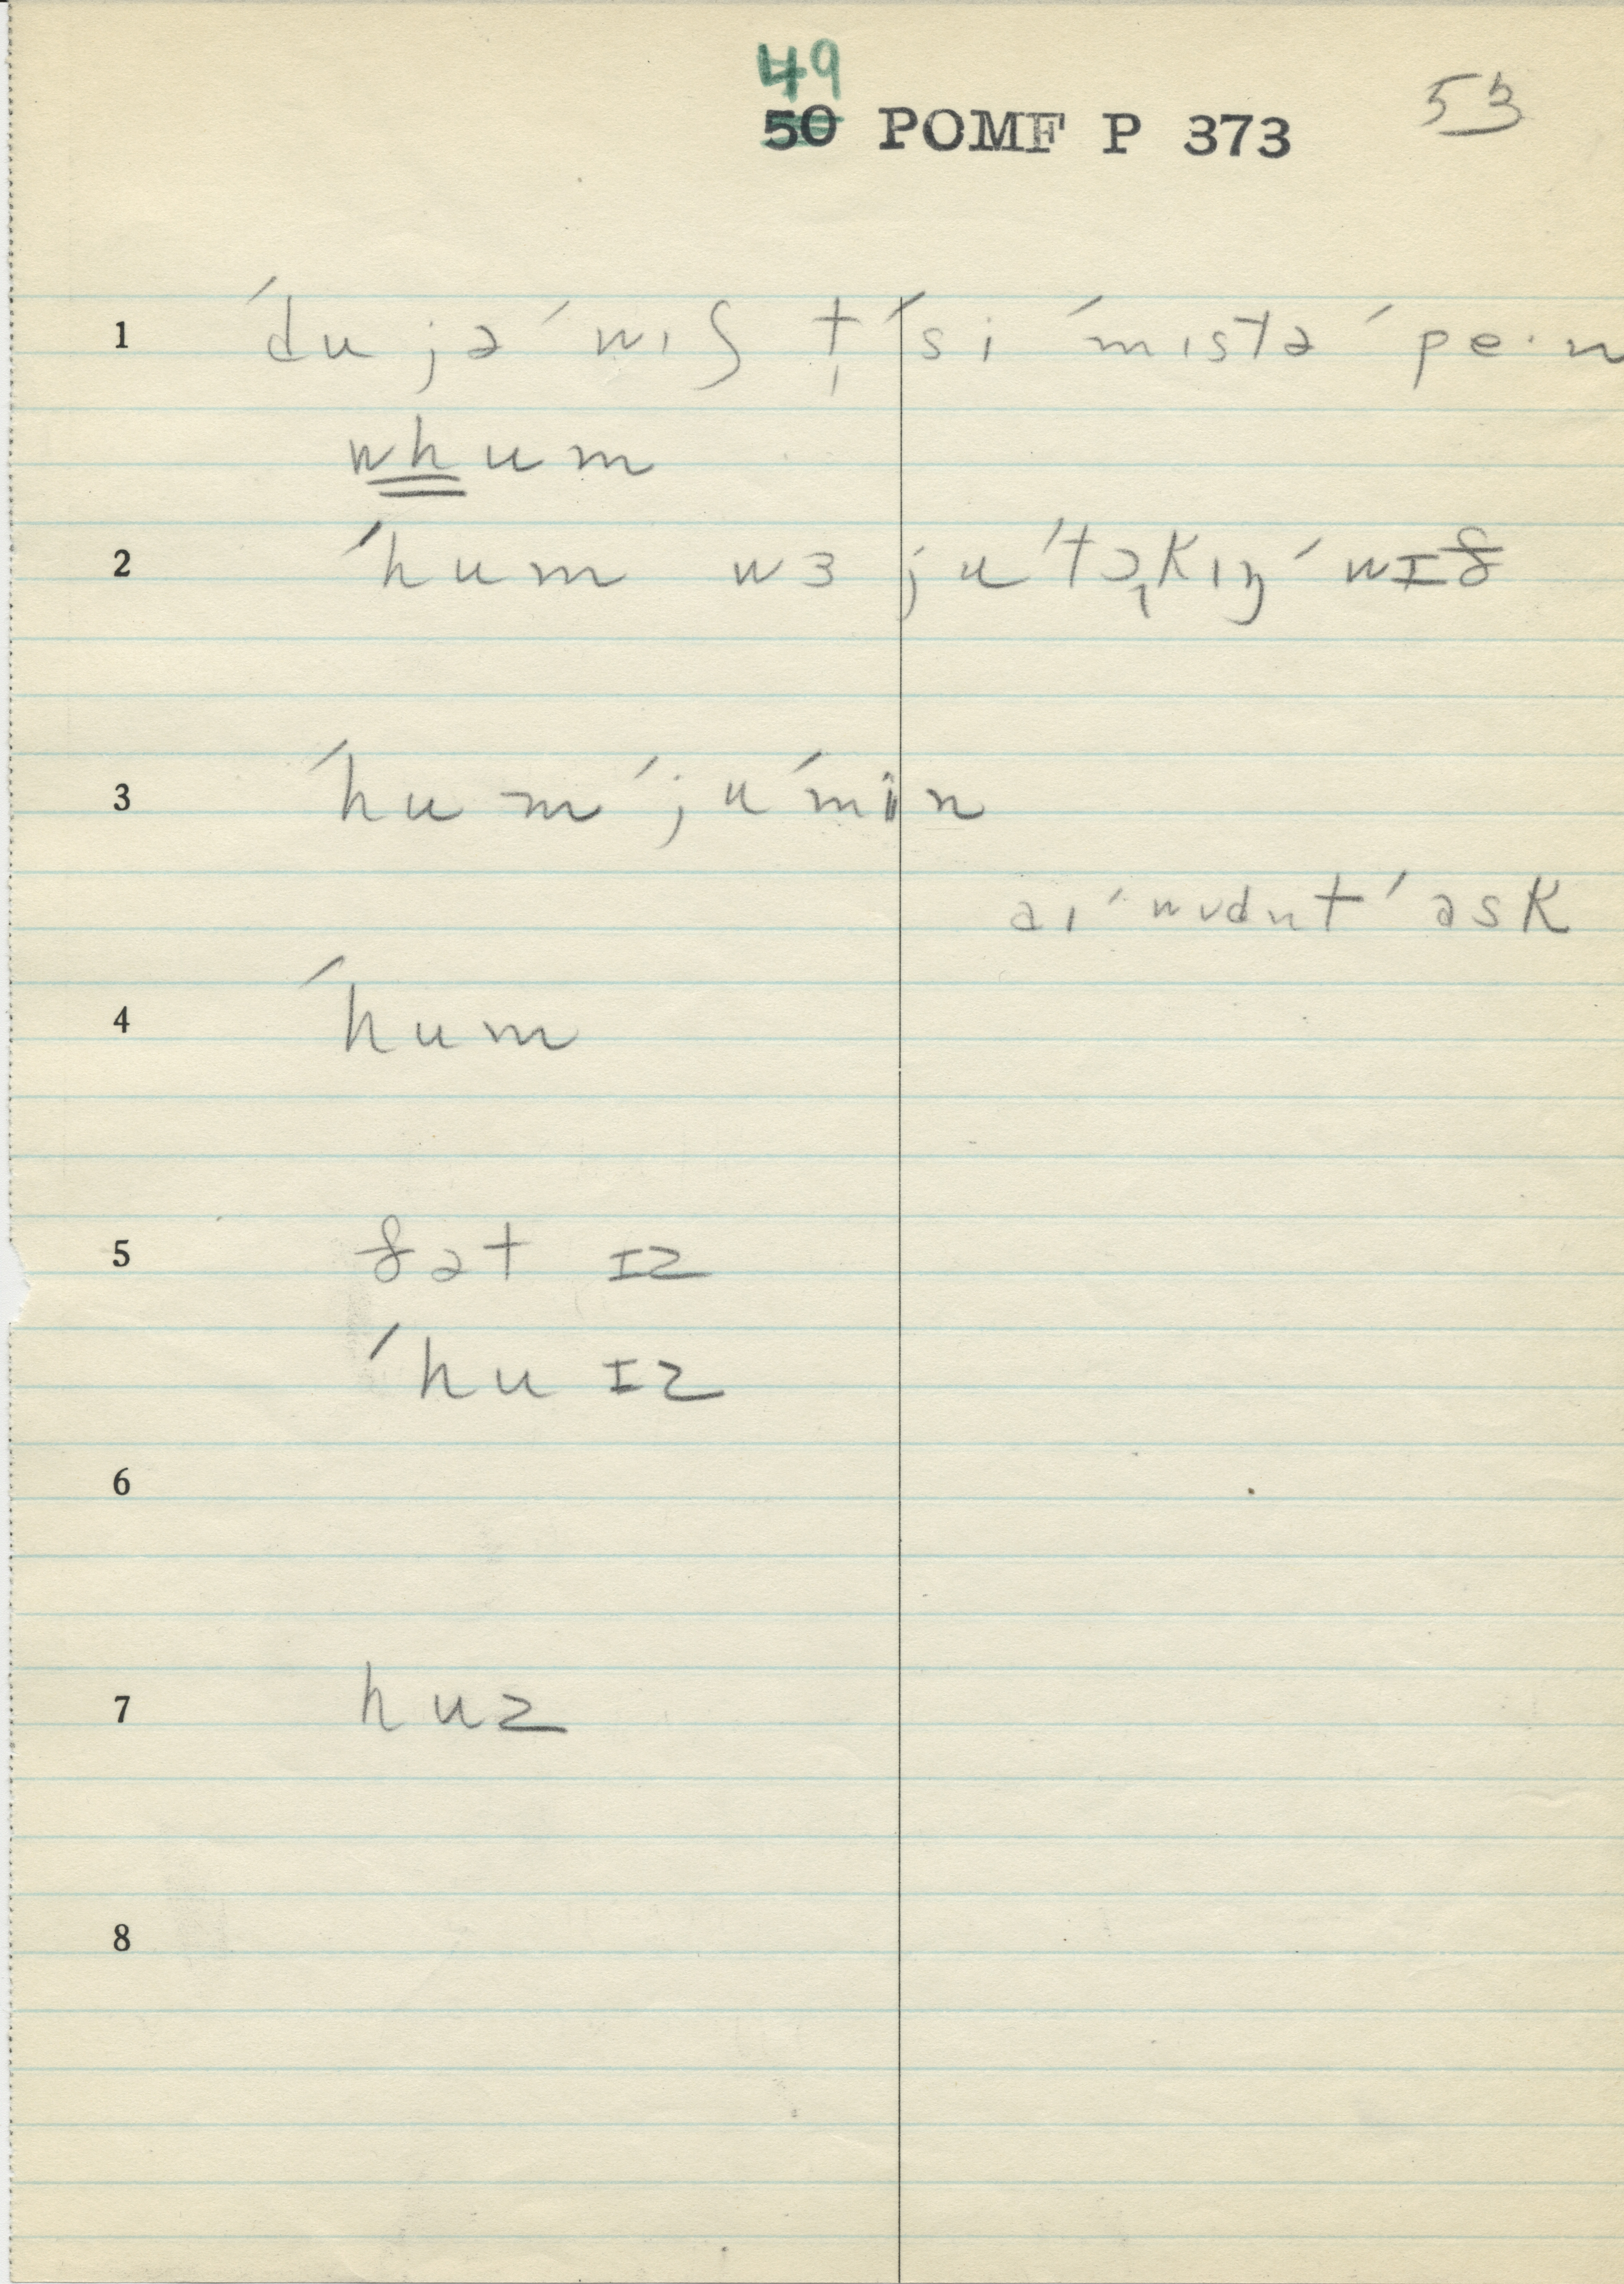 49
50 POMF P 373
53
1 ˊdu jəˊwɪʃ t̩ˊsi ˊmɪstəˊpe·n
whum
2 ˊhum wɜ juˊtɔ̨kɪŋˊwɪð
3 ˊhumˊjuˊmin
aɪˊwʊdn̩tˊask
4 ˊhum
5 ðət ɪz
ˊhu ɪz
6
7 huz
8